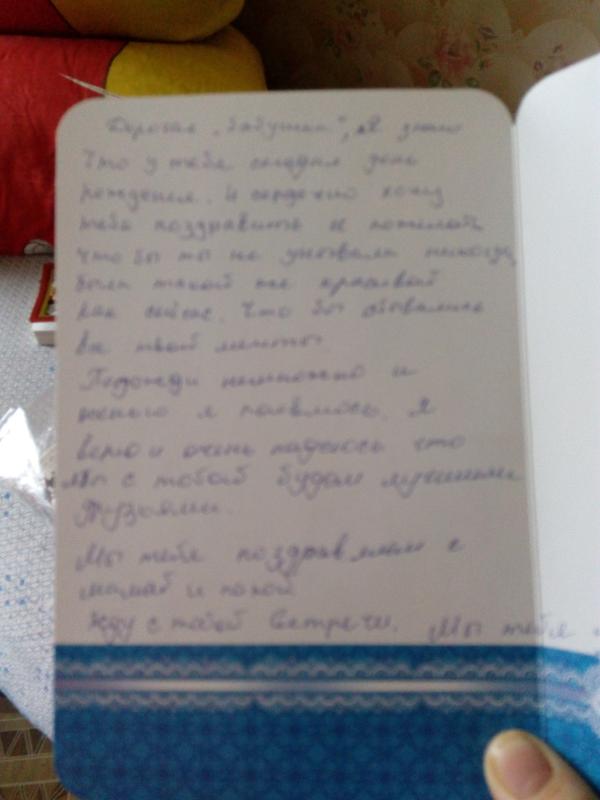 Дорогая "бабушка", Я знаю
Что у тебя сегодня день
рождения. И сердечно хочу
тебя поздравить и пожелать
что бы ты не унывала никогда,
была такой же красивой
как сейчас. Что бы сбывались
все твой мечты.
Подожди немножко и
я появлюсь. Я
верю и очень надеюсь что
Мы с тобой будем лучшими
друзьями.
Мы тебя поздравляем с
мамой и папой
Жду с тобой встречи. Мы тебя